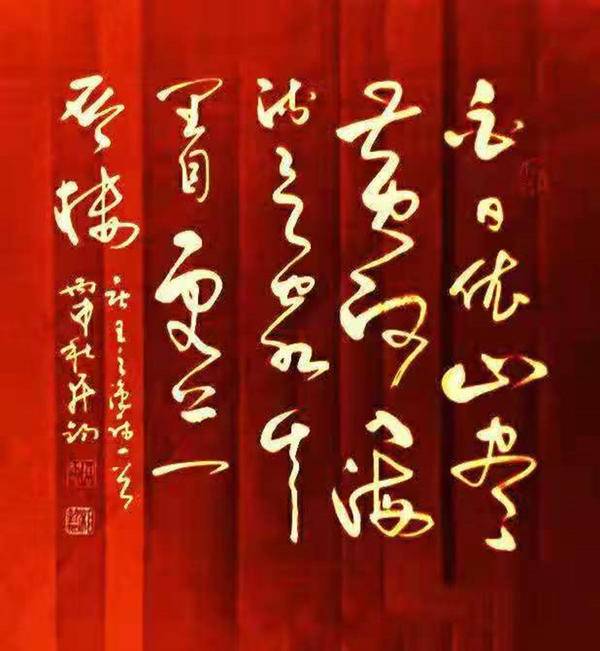 白日依山尽
黄河入海
流欲穷千
里目更上一
层楼
王之涣诗一首
丙申秋